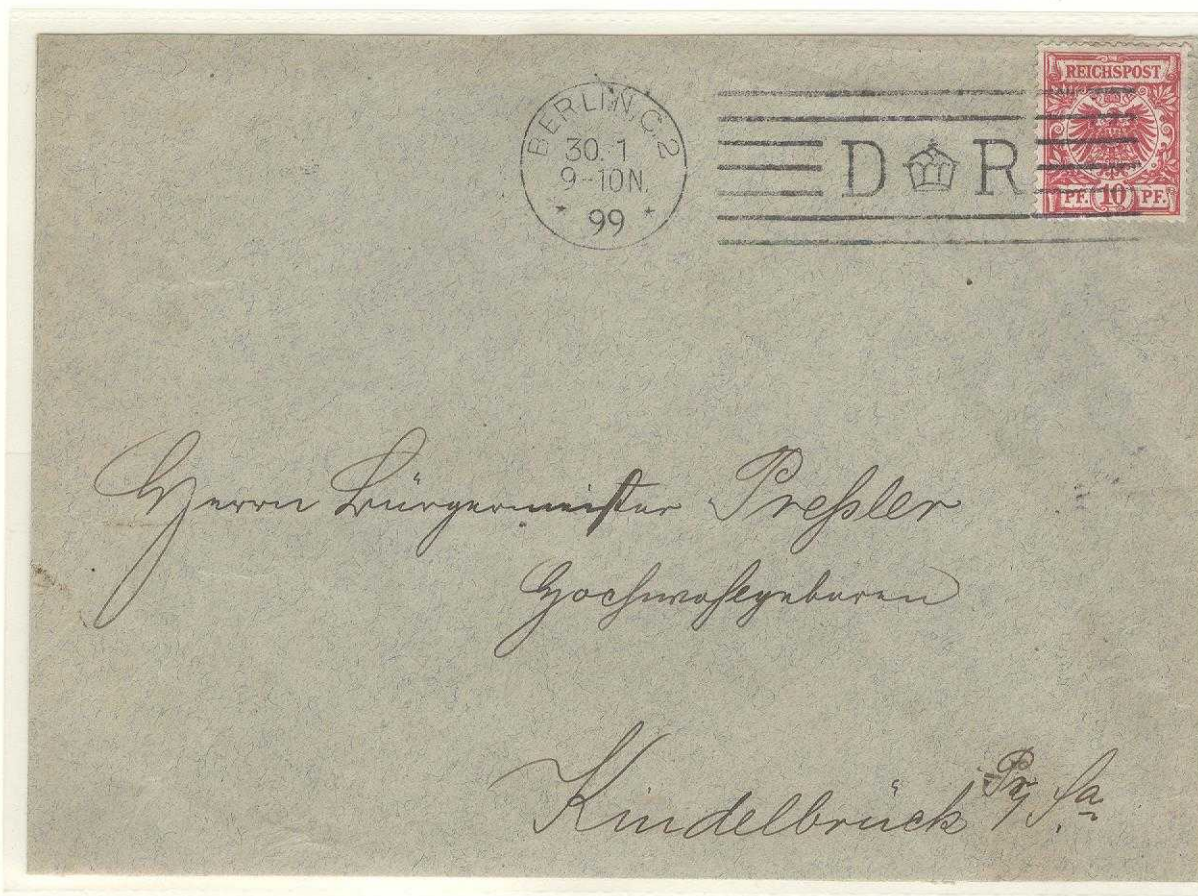 BERLIN. C. 2
30. 1
9-10 N.
* 99 *
D R
REICHSPOST
PF. 10 PF.
Herrn Bürgermeister Preßler
Hochwohlgeboren
Kindelbrück Pr/Sa